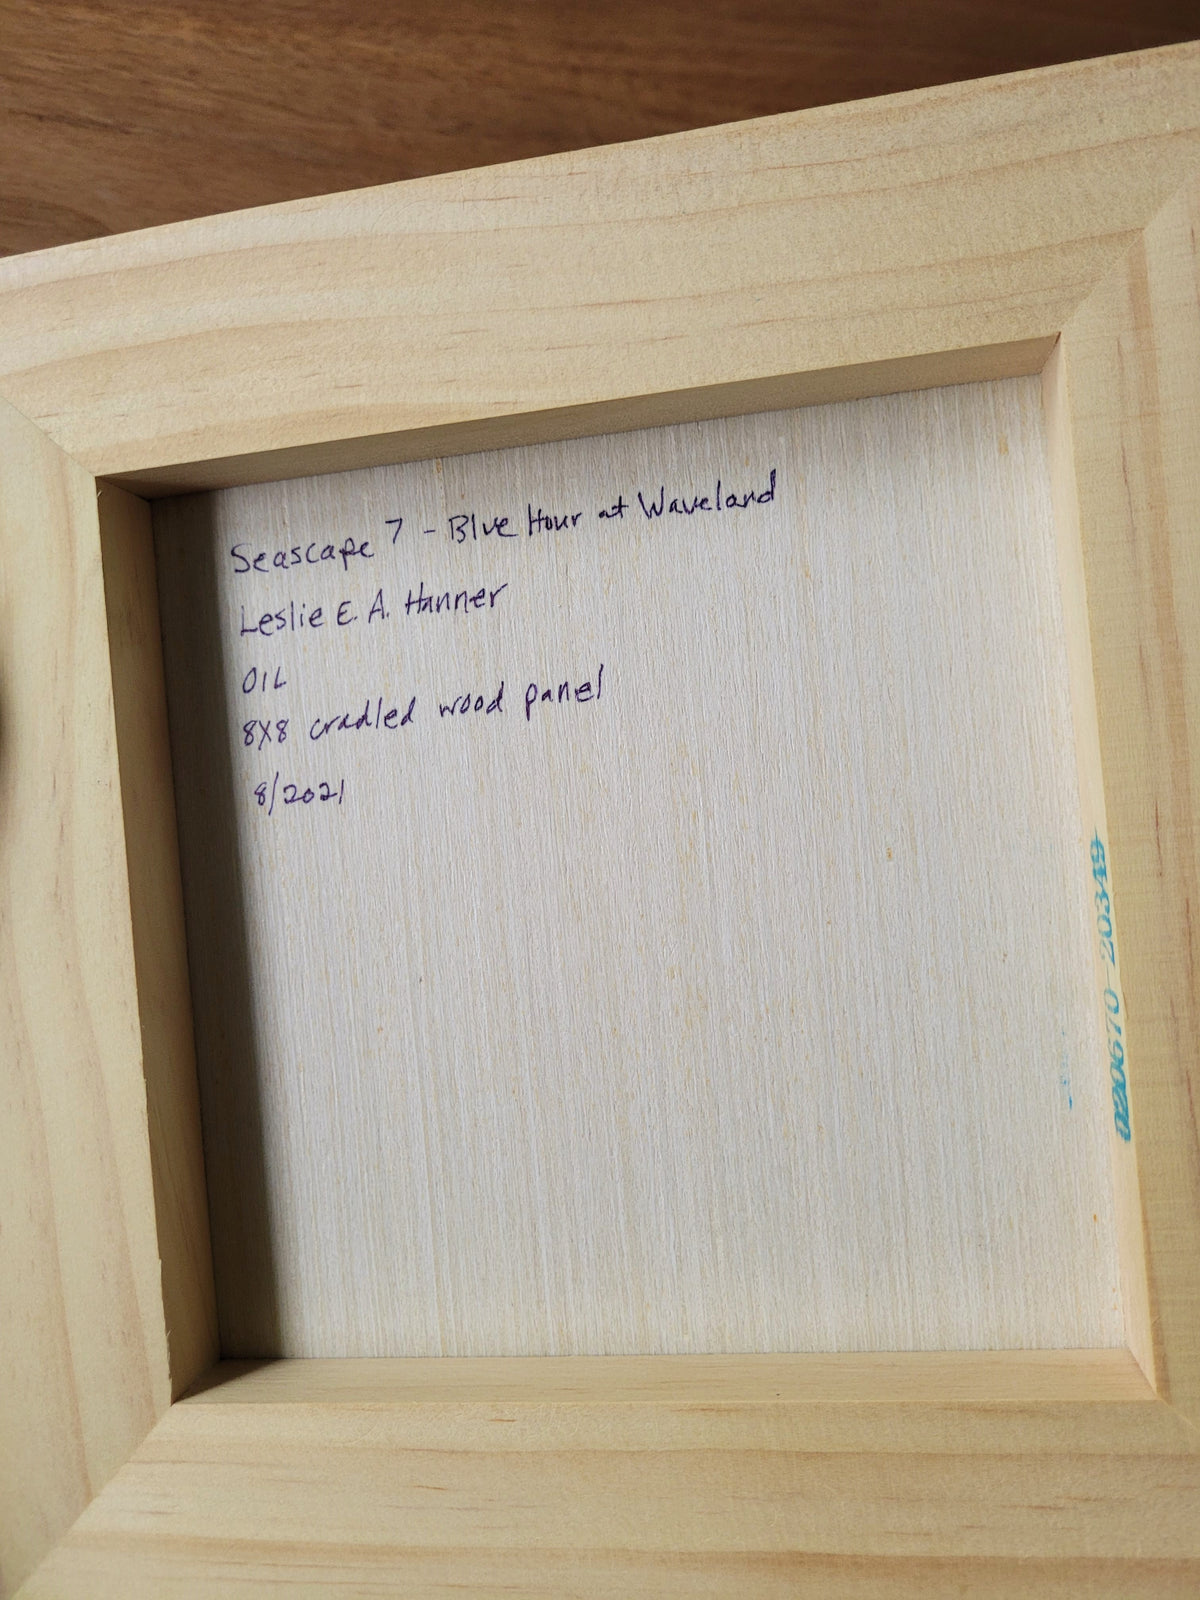 Seascape 7 - Blue Hour at Waveland
Leslie E. A. Hanner
OIL
8X8 cradled wood panel
8/2021
020670-20349